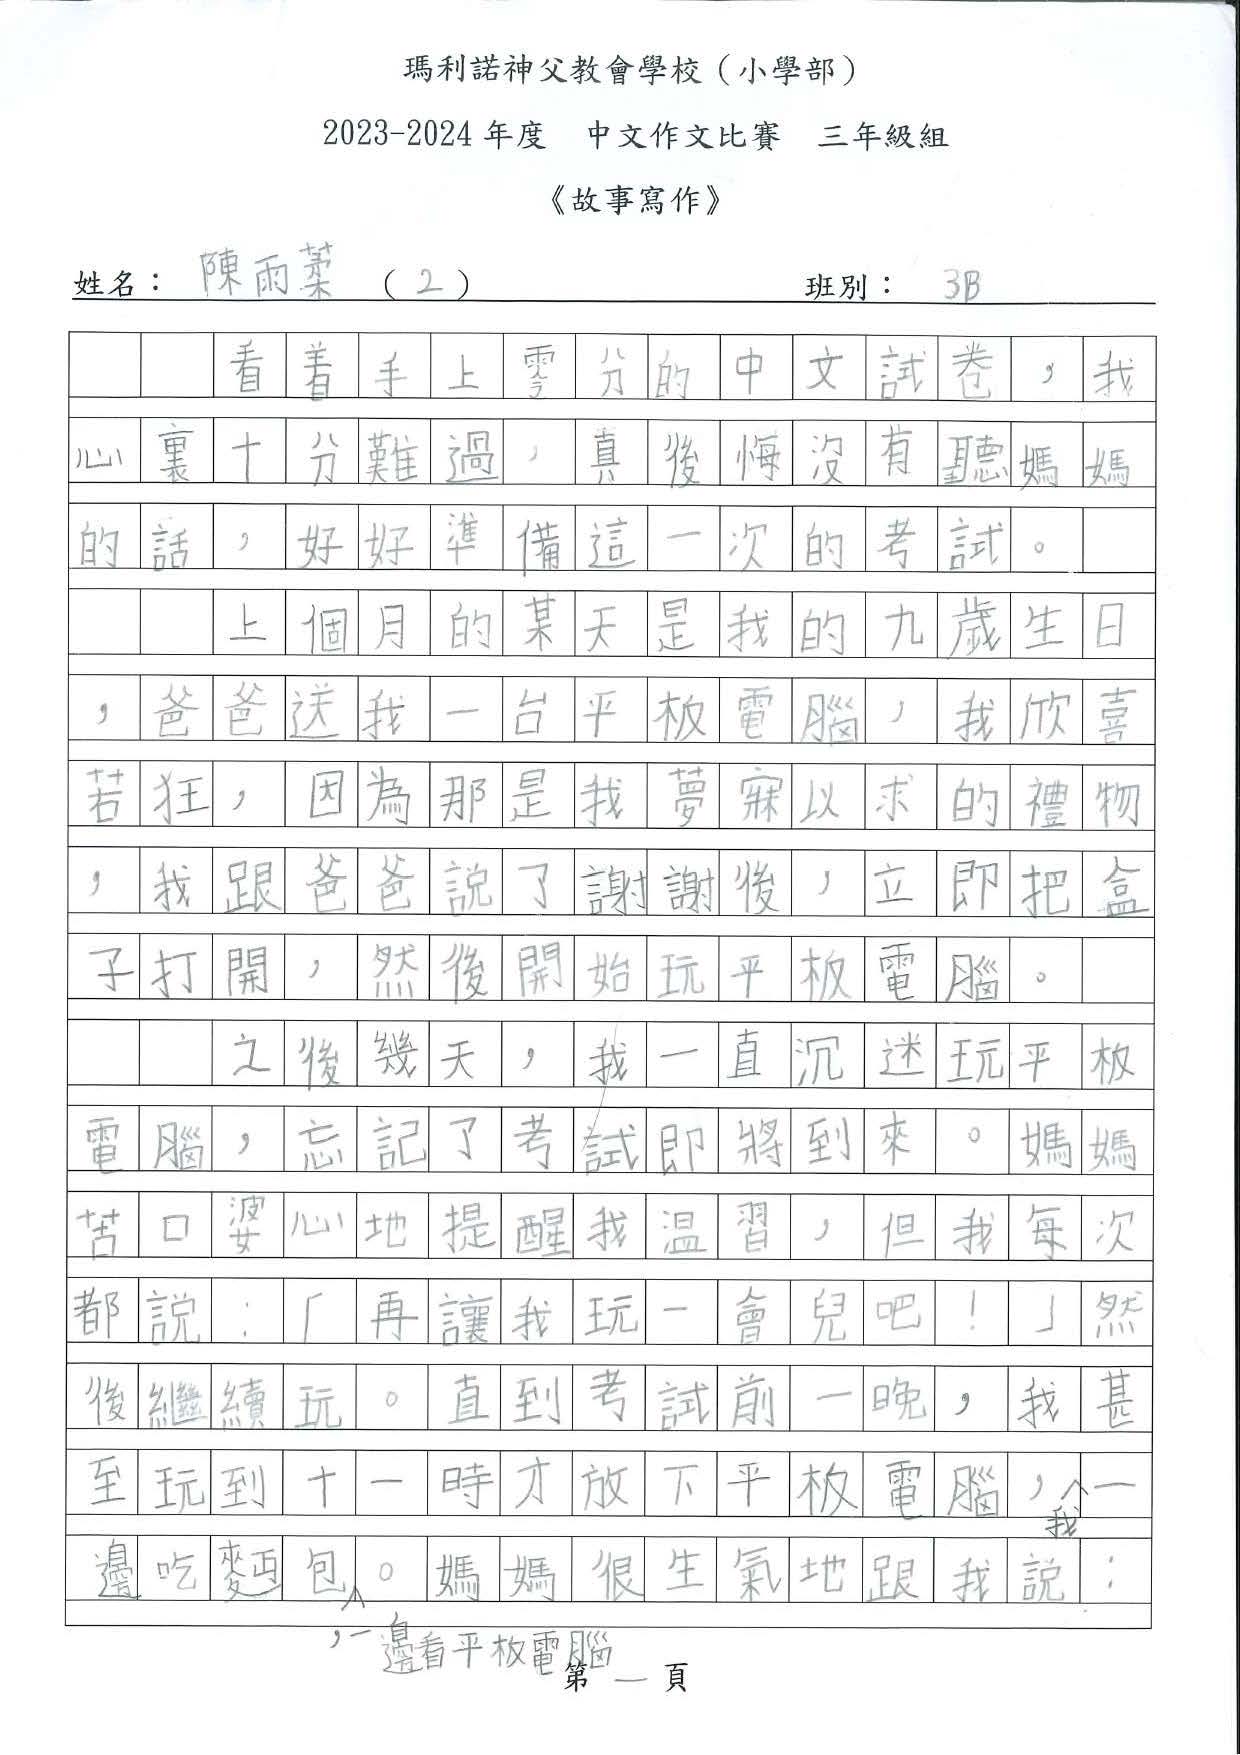 瑪利諾神父教會學校（小學部）
2023-2024 年度　中文作文比賽　三年級組
《故事寫作》
姓名：陳雨蕠（2）　班別：3B
看着手上零分的中文試卷，我
心裏十分難過，真後悔沒有聽媽媽
的話，好好準備這一次的考試。
上個月的某天是我的九歲生日
，爸爸送我一台平板電腦，我欣喜
若狂，因為那是我夢寐以求的禮物
，我跟爸爸説了謝謝後，立即把盒
子打開，然後開始玩平板電腦。
之後幾天，我一直沉迷玩平板
電腦，忘記了考試即將到來。媽媽
苦口婆心地提醒我温習，但我每次
都説：「再讓我玩一會兒吧！」然
後繼續玩。直到考試前一晚，我甚
至玩到十一時才放下平板電腦，我一
邊吃麪包，一邊看平板電腦。媽媽很生氣地跟我説：
第一頁